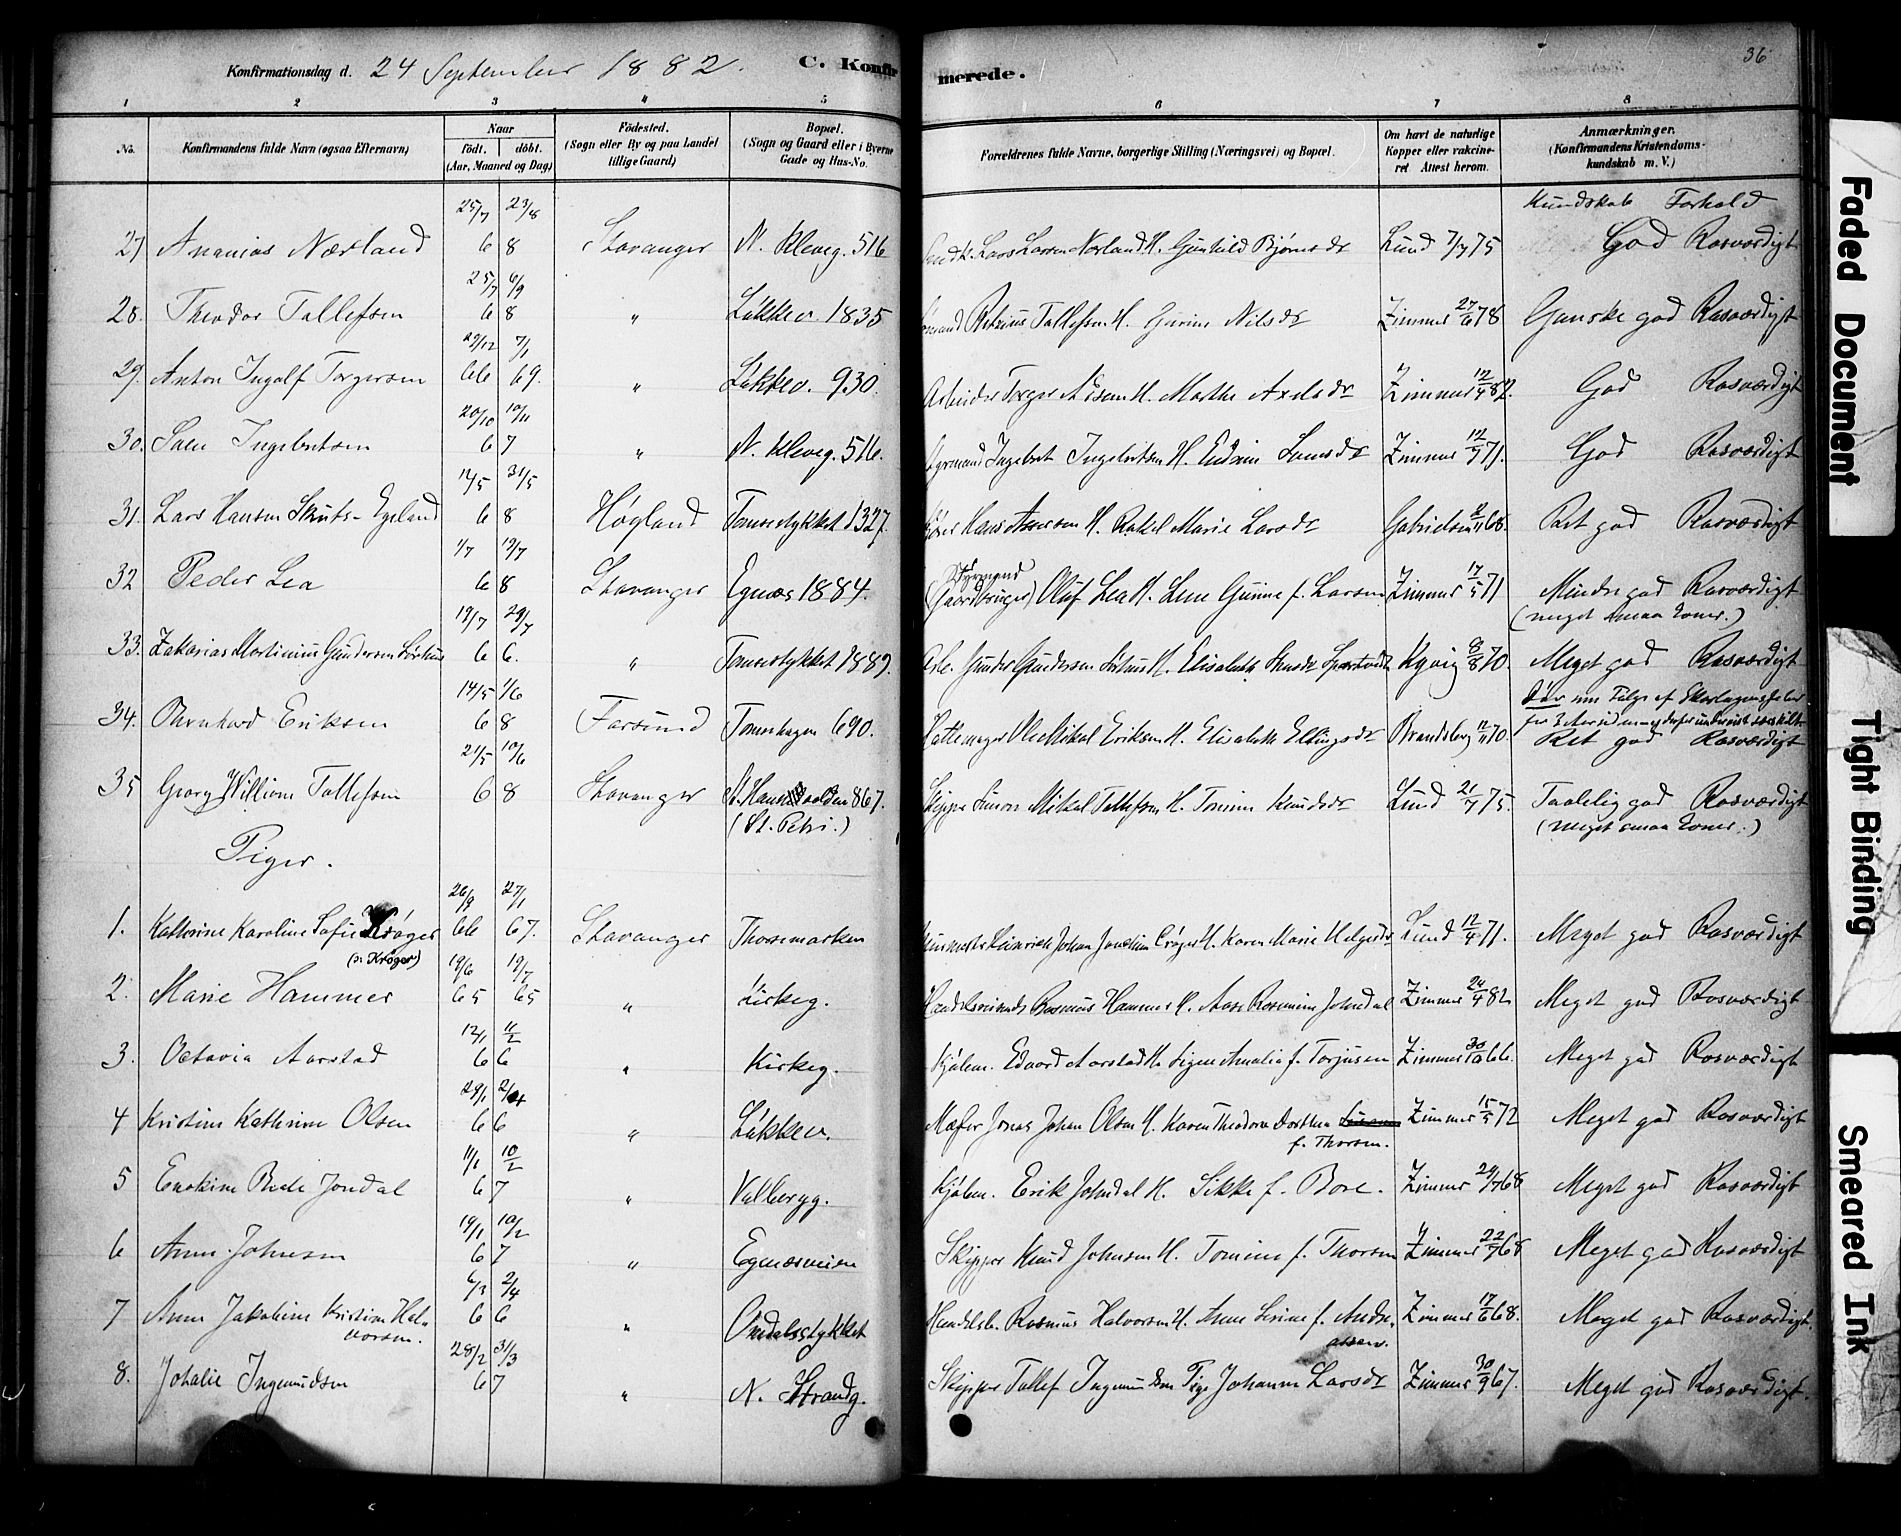 Konfirmationsdag d. 24 September 1882. C. Konfirmerede. 36
1 2 3 4 5 6 7 8
No. Konfirmandens fulde Navn (ogsaa Efternavn) Naar födt. döbt. (Aar, Maaned og Dag) Födested. (Sogn eller By og paa Landet tillige Gaard) Bopæl. (Sogn og Gaard eller i Byerne Gade og Hus-No. Forældrenes fulde Navne, borgerlige Stilling (Næringsvei) og Bopæl. Om havt de naturlige Kopper eller vakcineret Attest herom. Anmærkninger. (Konfirmandens Kristendomskundskab m. V.)
Kundskab Forhold
27 Ananias Nærland 25/7 23/8 68 Stavanger N. Kleveg. 516 Lars Larsen Nærland H. Gunhild Bjørnsdr Lund 7/7 75 God Rosværdigt
28. Theodor Tallefsen 25/7 6/9 68 " Løkkev. 1835 Tallefsen H. Gurine Nilsdr Zimmer 27/6 78 Ganske god Rosværdigt
29. Anton Ingolf Torgersen 29/12 7/1 66 69. " Løkkev. 930. Arbeider Torger H. Marthe Axelsdr Zimmer 12/4 82. God Rosværdigt
30. Ingebretsen 20/10 10/11 67 " N. Kleveg. 516. Styrmand Ingebret Ingebretsen H. Larsdr Zimmer 12/7 71. God Rosværdigt
31. Lars Hansen Egeland 14/5 31/5 68 Høgland Tomsestykket 1327. Hans H. Rakel Marie Larsdr Gabrielsen 68. Ret god Rosværdigt
32 Peder Lea 1/7 19/7 68 Stavanger Egnæs 1884. Styrmand (Gaardbruger) Oluf Lea H. Lene Gurine f. Larsen Zimmer 17/5 71 Mindre god Rosværdigt
(meget smaa Evner.)
33. Zakarias Martinius Gundersen Sørhus 19/7 29/7 66. " Tomsestykket 1889. Arb. Gunder Gundersen Sørhus H. Elisabeth Kyvig 8/8 70 Meget god Rosværdigt
34. Bernhard Eriksen 14/5 1/6 68 Farsund Tomshagen 690. Hattemager Ole Mikal Eriksen H. Elisabeth Ellingsdr Brandsberg 12/11 70. Døv som Følge af Skarlagensfeber
Ret god Rosværdigt
35 Georg William Tallefsen 21/5 10/6 68 Stavanger St. Hans 867. (St. Petri.) Skipper Simon Mikal Tallefsen H. Tomine Knudsdr Lund 21/7 75. Taalelig god Rosværdigt
(meget smaa Evner.)
Piger.
1. Kathrine Karoline Sofie Krøger (ɔ: Krøger) 26/9 27/1 66 67. Stavanger Thorsemarken Heinrich Johan Joachim Crøger H. Karen Marie Helgesdr Lund 12/4 71. Meget god Rosværdigt
2. Marie Hammer 19/6 19/7 65 65 " Kirkeg. Rasmus Hammer H. Rasmine Johndal Zimmer 24/4 82 Meget god Rosværdigt
3. Octavia Aarstad 12/1 11/2 66 " Kirkeg. Kjøbm. Edvard Aarstad H. Signe Amalia f. Torjusen Zimmer 30/10 66. Meget god Rosværdigt
4 Kristine Kathrine Olsen 29/1 2/4 66 " Løkkev. Mægler Jonas Johan Olsen H. Karen Theodora Dorthea f. Thorsen. Zimmer 15/5 72 Meget god Rosværdigt
5 Enokine Bede Jondal 11/1 10/2 67 " Valbergg. Kjøbm. Erik Johndal H. Sikke f. Bore. Zimmer 29/7 68 Meget god Rosværdigt
6 Anne Johnsen 19/1 10/2 67 " Egenæsveien Skipper Knud Johnsen H. Tomine f. Thorsen Zimmer 22/7 68 Meget god Rosværdigt
7 Anne Jakobine Kristine Halvorsen. 6/3 2/4 66 " Omdalsstykket Handelsb. Rasmus Halvorsen H. Anne Serine f. Andreassen. Zimmer 17/6 68. Meget god Rosværdigt.
8. Johalie Ingemundsen 28/2 31/3 67 " N. Strandg. Skipper Tallef Ingemundsen Pige Johanne Larsdr Zimmer 30/9 67. Meget god Rosværdigt.
Faded Document
Tight Binding
Smeared Ink